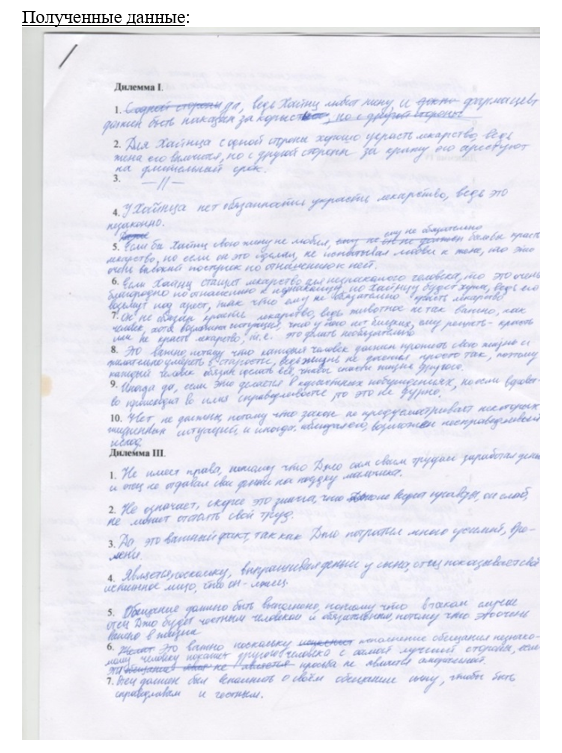 Полученные данные:
Дилемма I.
1. да, ведь Хайнц любит жену, и фармацевт
должен быть наказан за корысть
2. Для Хайнца с одной стороны хорошо украсть лекарство, ведь
жена его больна, но с другой стороны за кражу его арестуют
на длительный срок.
3. —//—
4. У Хайнца нет обязанности украсть лекарство, ведь это
незаконно.
5. Если бы Хайнц свою жену не любил, ему не обязательно было бы красть
лекарство, но если он это сделал, не любви к жене, то это
очень поступок по отношению к ней.
6. Если Хайнц лекарство для незнакомого человека, то это очень
благородно по отношению к незнакомцу, но Хайнцу будет хуже, ведь его
посадят под арест, так что ему не обязательно красть лекарство
7. Он не обязан лекарство, ведь животное не так важно, как
человек, ситуация, что у него нет ему решать - красть
или не красть лекарство, т.е. это делать необязательно
8. Это важно потому что каждый человек должен прожить свою жизнь и
умереть в старости, ведь жизнь не дается просто так, поэтому
каждый человек обязан сделать все, чтобы спасти жизнь другого.
9. Иногда да, если это делается в корыстных побуждениях, но если
во имя справедливости то это не дурно.
10. Нет, не должны, потому что закон не предусматривает некоторых
жизненных ситуаций и иногда, возможен несправедливый
исход.
Дилемма III.
1. Не имеет права, потому что Джо сам своим трудом заработал деньги
и отец не отдавал свои деньги на поездку мальчика.
2. Не означает, скорее это значит, что он слаб,
не может отстоять свой труд.
3. Да, это важный факт, так как Джо потратил много усилий, вре-
мени.
4. Является, поскольку, выпрашивая деньги у сына, отец показывает своё
истинное лицо, что он - лжец.
5. Обещание должно быть выполнено, потому что в таком случае
отец Джо будет честным человеком и потому что это очень
важно в жизни.
6. Это важно поскольку исполнение обещания незнако-
мому человеку покажет другого человека с самой лучшей стороны, если
просьба не является
7. Отец должен был вспомнить о своём обещании сыну, чтобы быть
справедливым и честным.